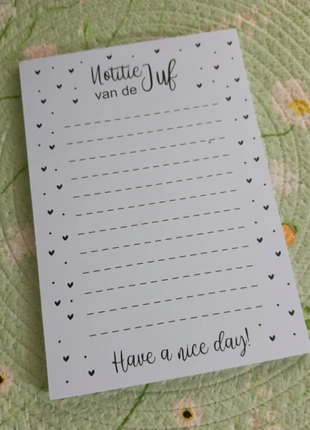 Notitie
van de Juf
Have a nice day!